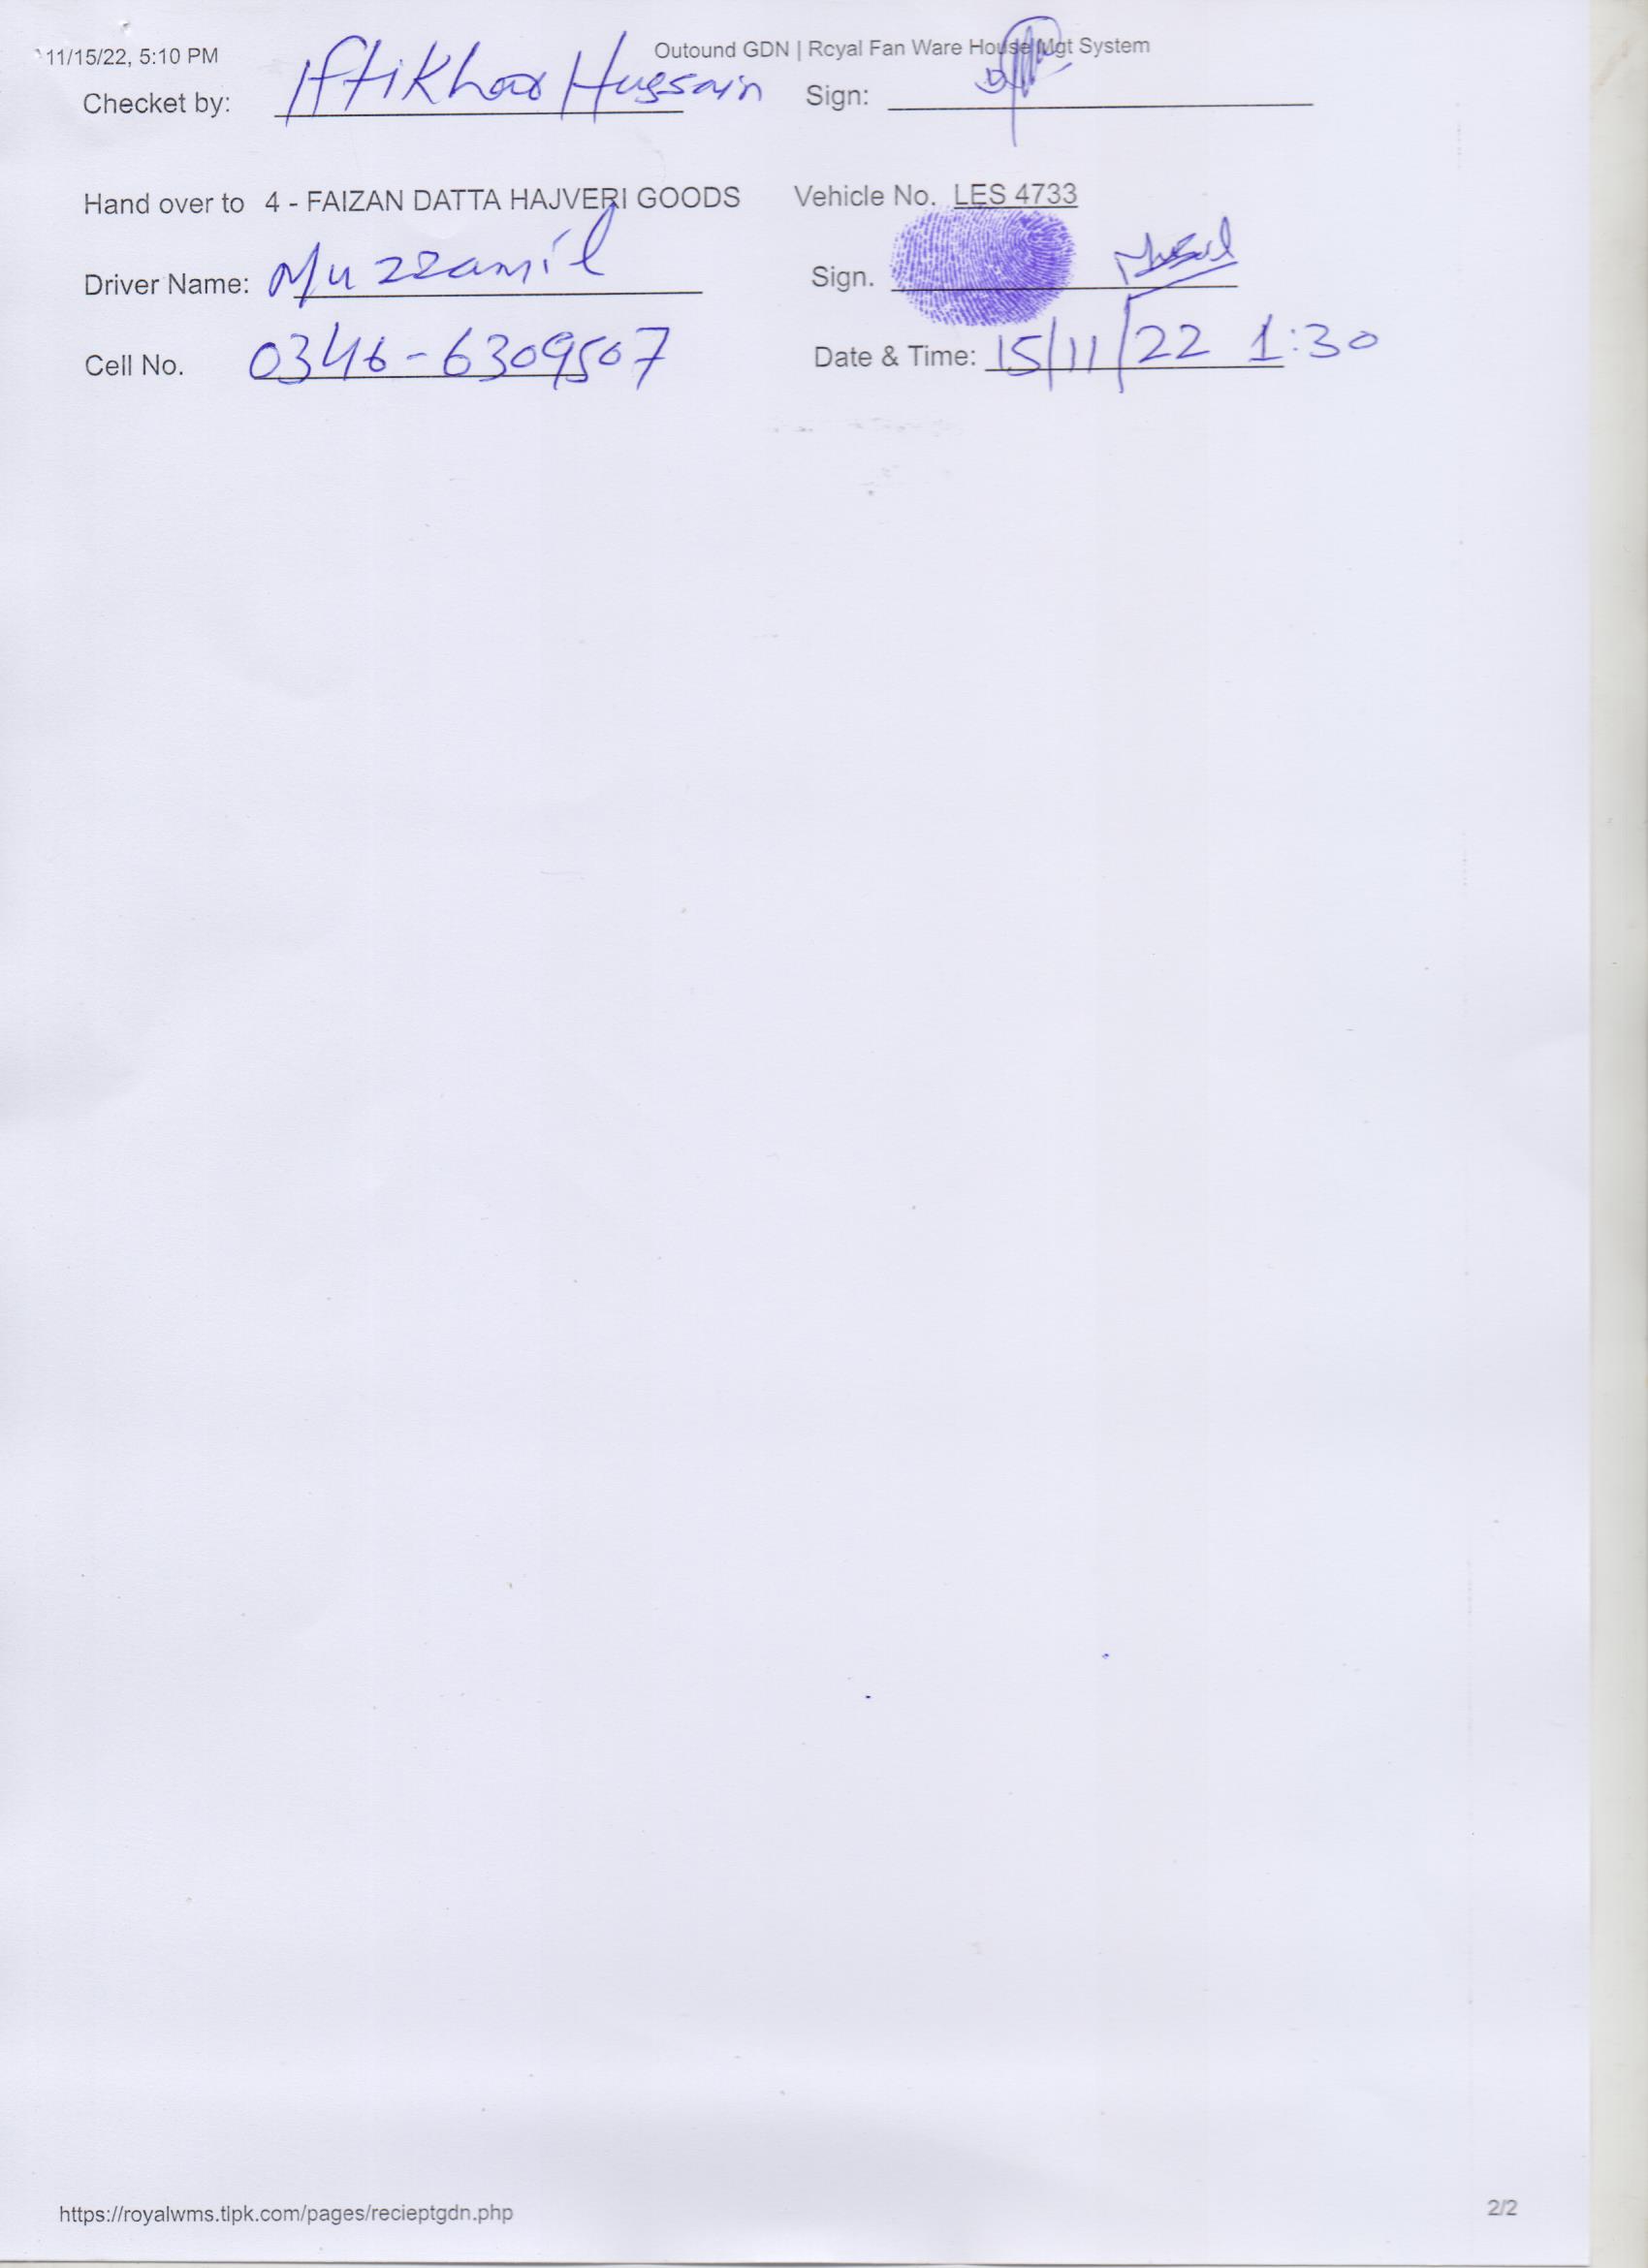 11/15/22, 5:10 PM Outound GDN | Rcyal Fan Ware House Mgt System
Checket by: Iftikhar Hussain Sign:
Hand over to 4 - FAIZAN DATTA HAJVERI GOODS Vehicle No. LES 4733
Driver Name: Muzzamil Sign.
Cell No. 0346-6309507 Date & Time: 15/11/22 1:30
https://royalwms.tlpk.com/pages/recieptgdn.php 2/2